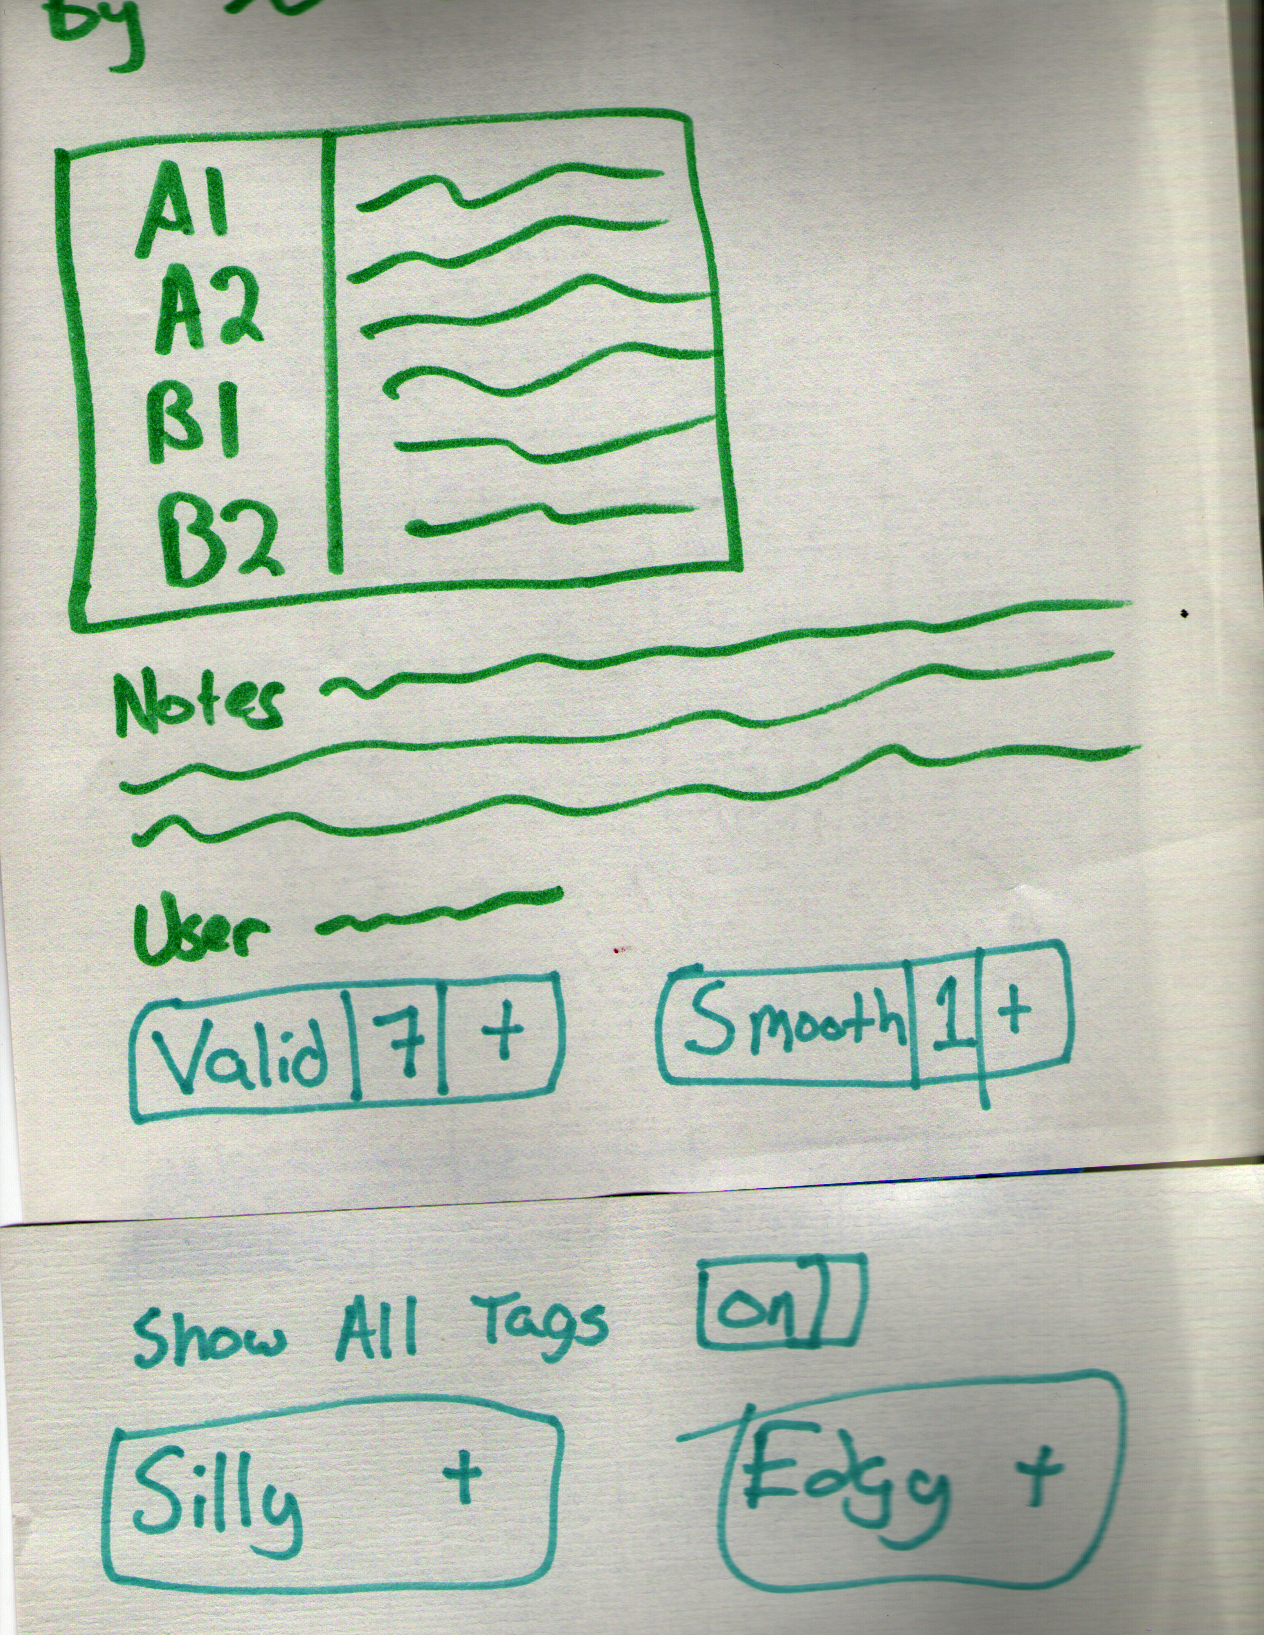 By
A1
A2
B1
B2
Notes
User
Valid 7 + Smooth 1 +
Show All Tags on
Silly + Edgy +